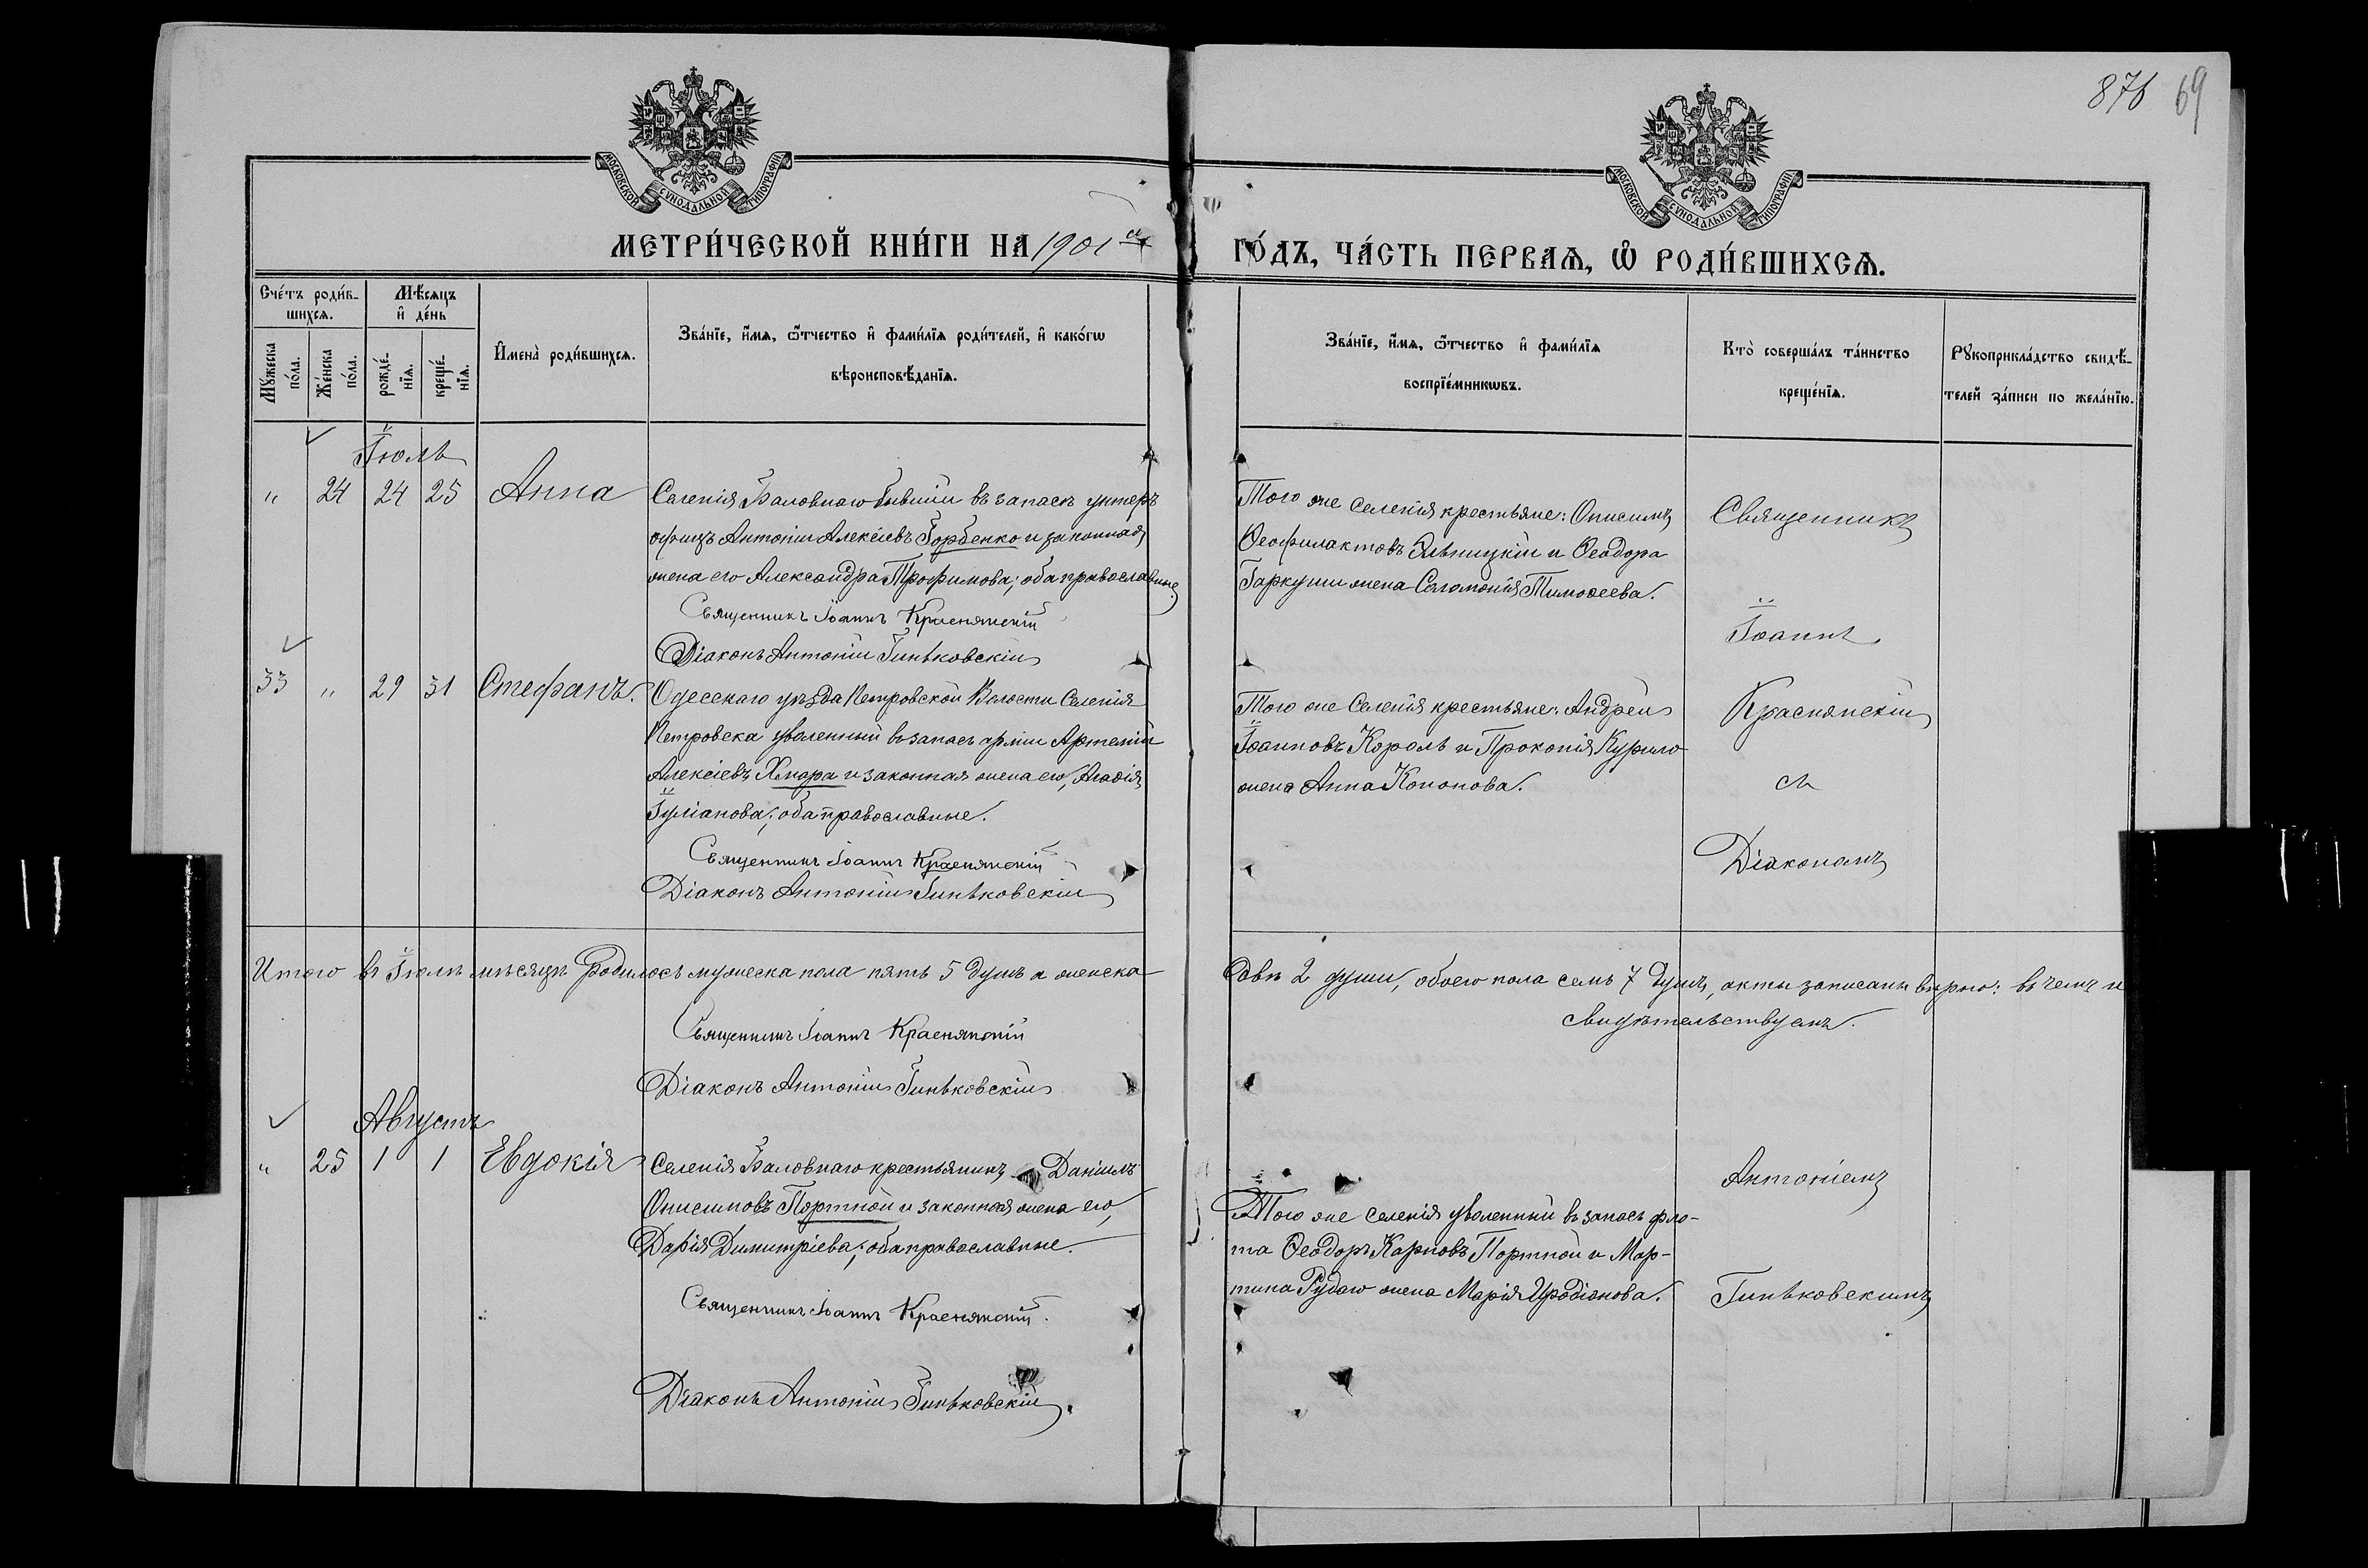 876 69
МОСКОВСКОЙ СѴНОДАЛЬНОЙ ТИПОГРАФІИ
МОСКОВСКОЙ СѴНОДАЛЬНОЙ ТИПОГРАФІИ
МЕТРИ́ЧЕСКОЙ КНИ́ГИ НА 1901 й
ГО́ДЪ, ЧА́СТЬ ПЕРВАѦ, Ѽ РОДИ́ВШИХСѦ.
Сче́тъ роди́в-
шихсѧ.
Мꙋ́жеска по́ла.
Же́нска по́ла.
Мѣ́сѧцъ
и҆ де́нь
рожде́-
нїѧ.
креще́-
нїѧ.
И҆мена̀ роди́вшихсѧ.
Зва́нїе, и҆́мѧ, ѻ҆́тчество и҆ фами́лїѧ роди́телей, и҆ како́гѡ
вѣроисповѣ́данїѧ.
Зва́нїе, и҆́мѧ, ѻ҆́тчество и҆ фами́лїѧ
воспрїе́мникѡвъ.
Кто̀ соверша́лъ та́инство
креще́нїѧ.
Рꙋкоприкла́дство свидѣ́-
телей за́писи по жела́нїю.
Іюль
" 24 24 25 Анна
Селенія Баловнаго бывшій въ запасѣ унтеръ
офиц. Антоній Алексіевъ Горбенко и законная
жена его Александра Трофимова; оба православные.
Священникъ Іоаннъ Краснянскій
Діаконъ Антоній Гиньковскій
Того же селенія крестьяне: Онисимъ
Феофилактовъ Яльницкій и Феодора
Гаркуши жена Соломонія Тимофеева.
Священникъ
Іоаннъ
33 " 29 31 Стефанъ.
Одесскаго уѣзда Петровской Волости Селенія
Петровска уволенный въ запасъ арміи Артемій
Алексіевъ Хмара и законная жена его, Агафія
Іуліанова; оба православные.
Священникъ Іоаннъ Краснянскій
Діаконъ Антоній Гиньковскій
Того же Селенія крестьяне: Андрей
Іоанновъ Король и Прокопія Курило
жена Анна Кононова.
Краснянскій
съ
Діакономъ
Итого въ Іюлѣ мѣсяцѣ родилось мужеска пола пять 5 душъ и женска
двѣ 2 души, обоего пола семь 7 душъ, акты записаны вѣрно: въ чемъ и
свидѣтельствуемъ.
Священникъ Іоаннъ Краснянскій
Діаконъ Антоній Гиньковскій
Августъ
" 25 1 1 Евдокія
Селенія Баловнаго крестьянинъ Даніилъ
Онисимовъ Портной и законная жена его,
Дарія Димитріева; оба православные.
Священникъ Іоаннъ Краснянскій.
Діаконъ Антоній Гиньковскій.
Того же селенія уволенный въ запасъ фло-
та Феодоръ Карповъ Портной и Мар-
тина Рудаго жена Марія Иродіонова.
Антоніемъ
Гиньковскимъ